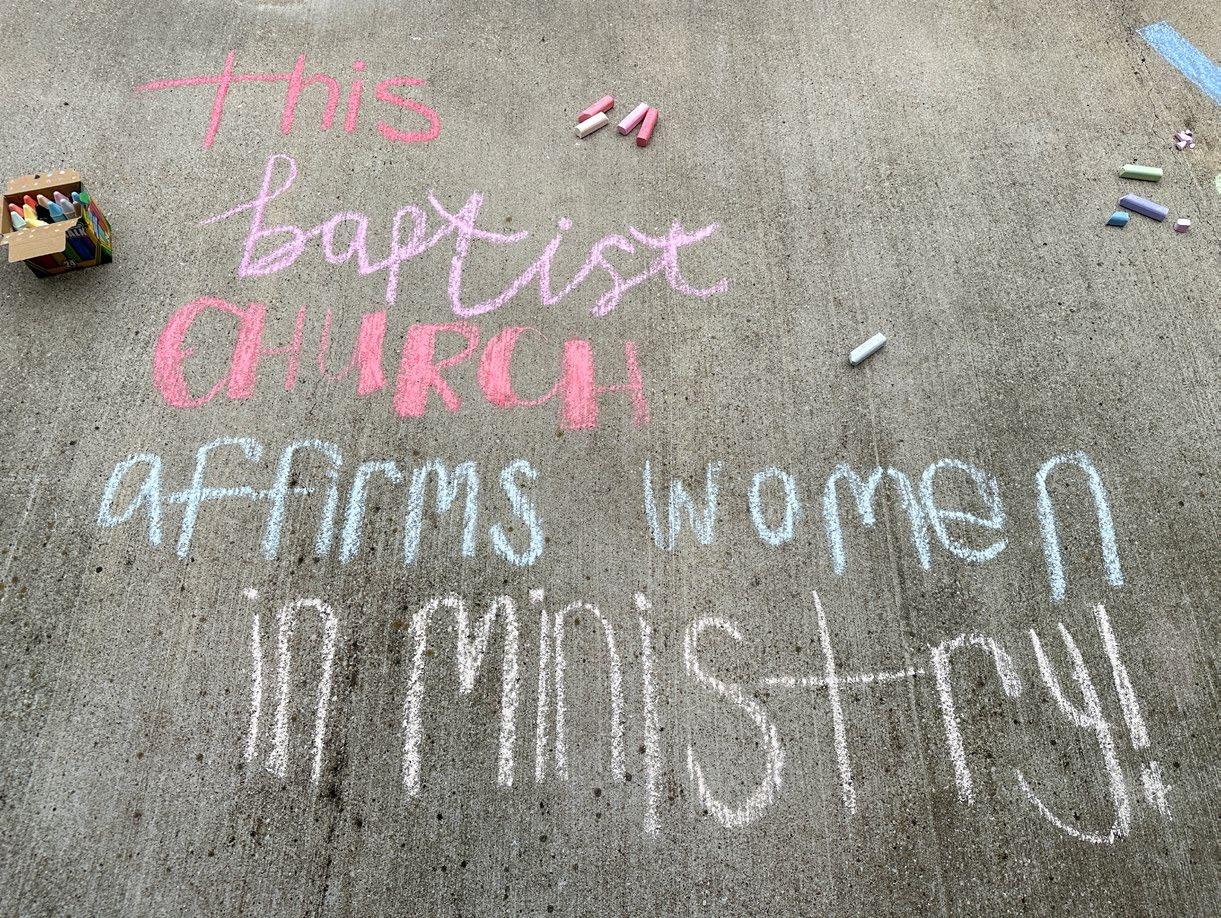 this
baptist
CHURCH
affirms women
in ministry!